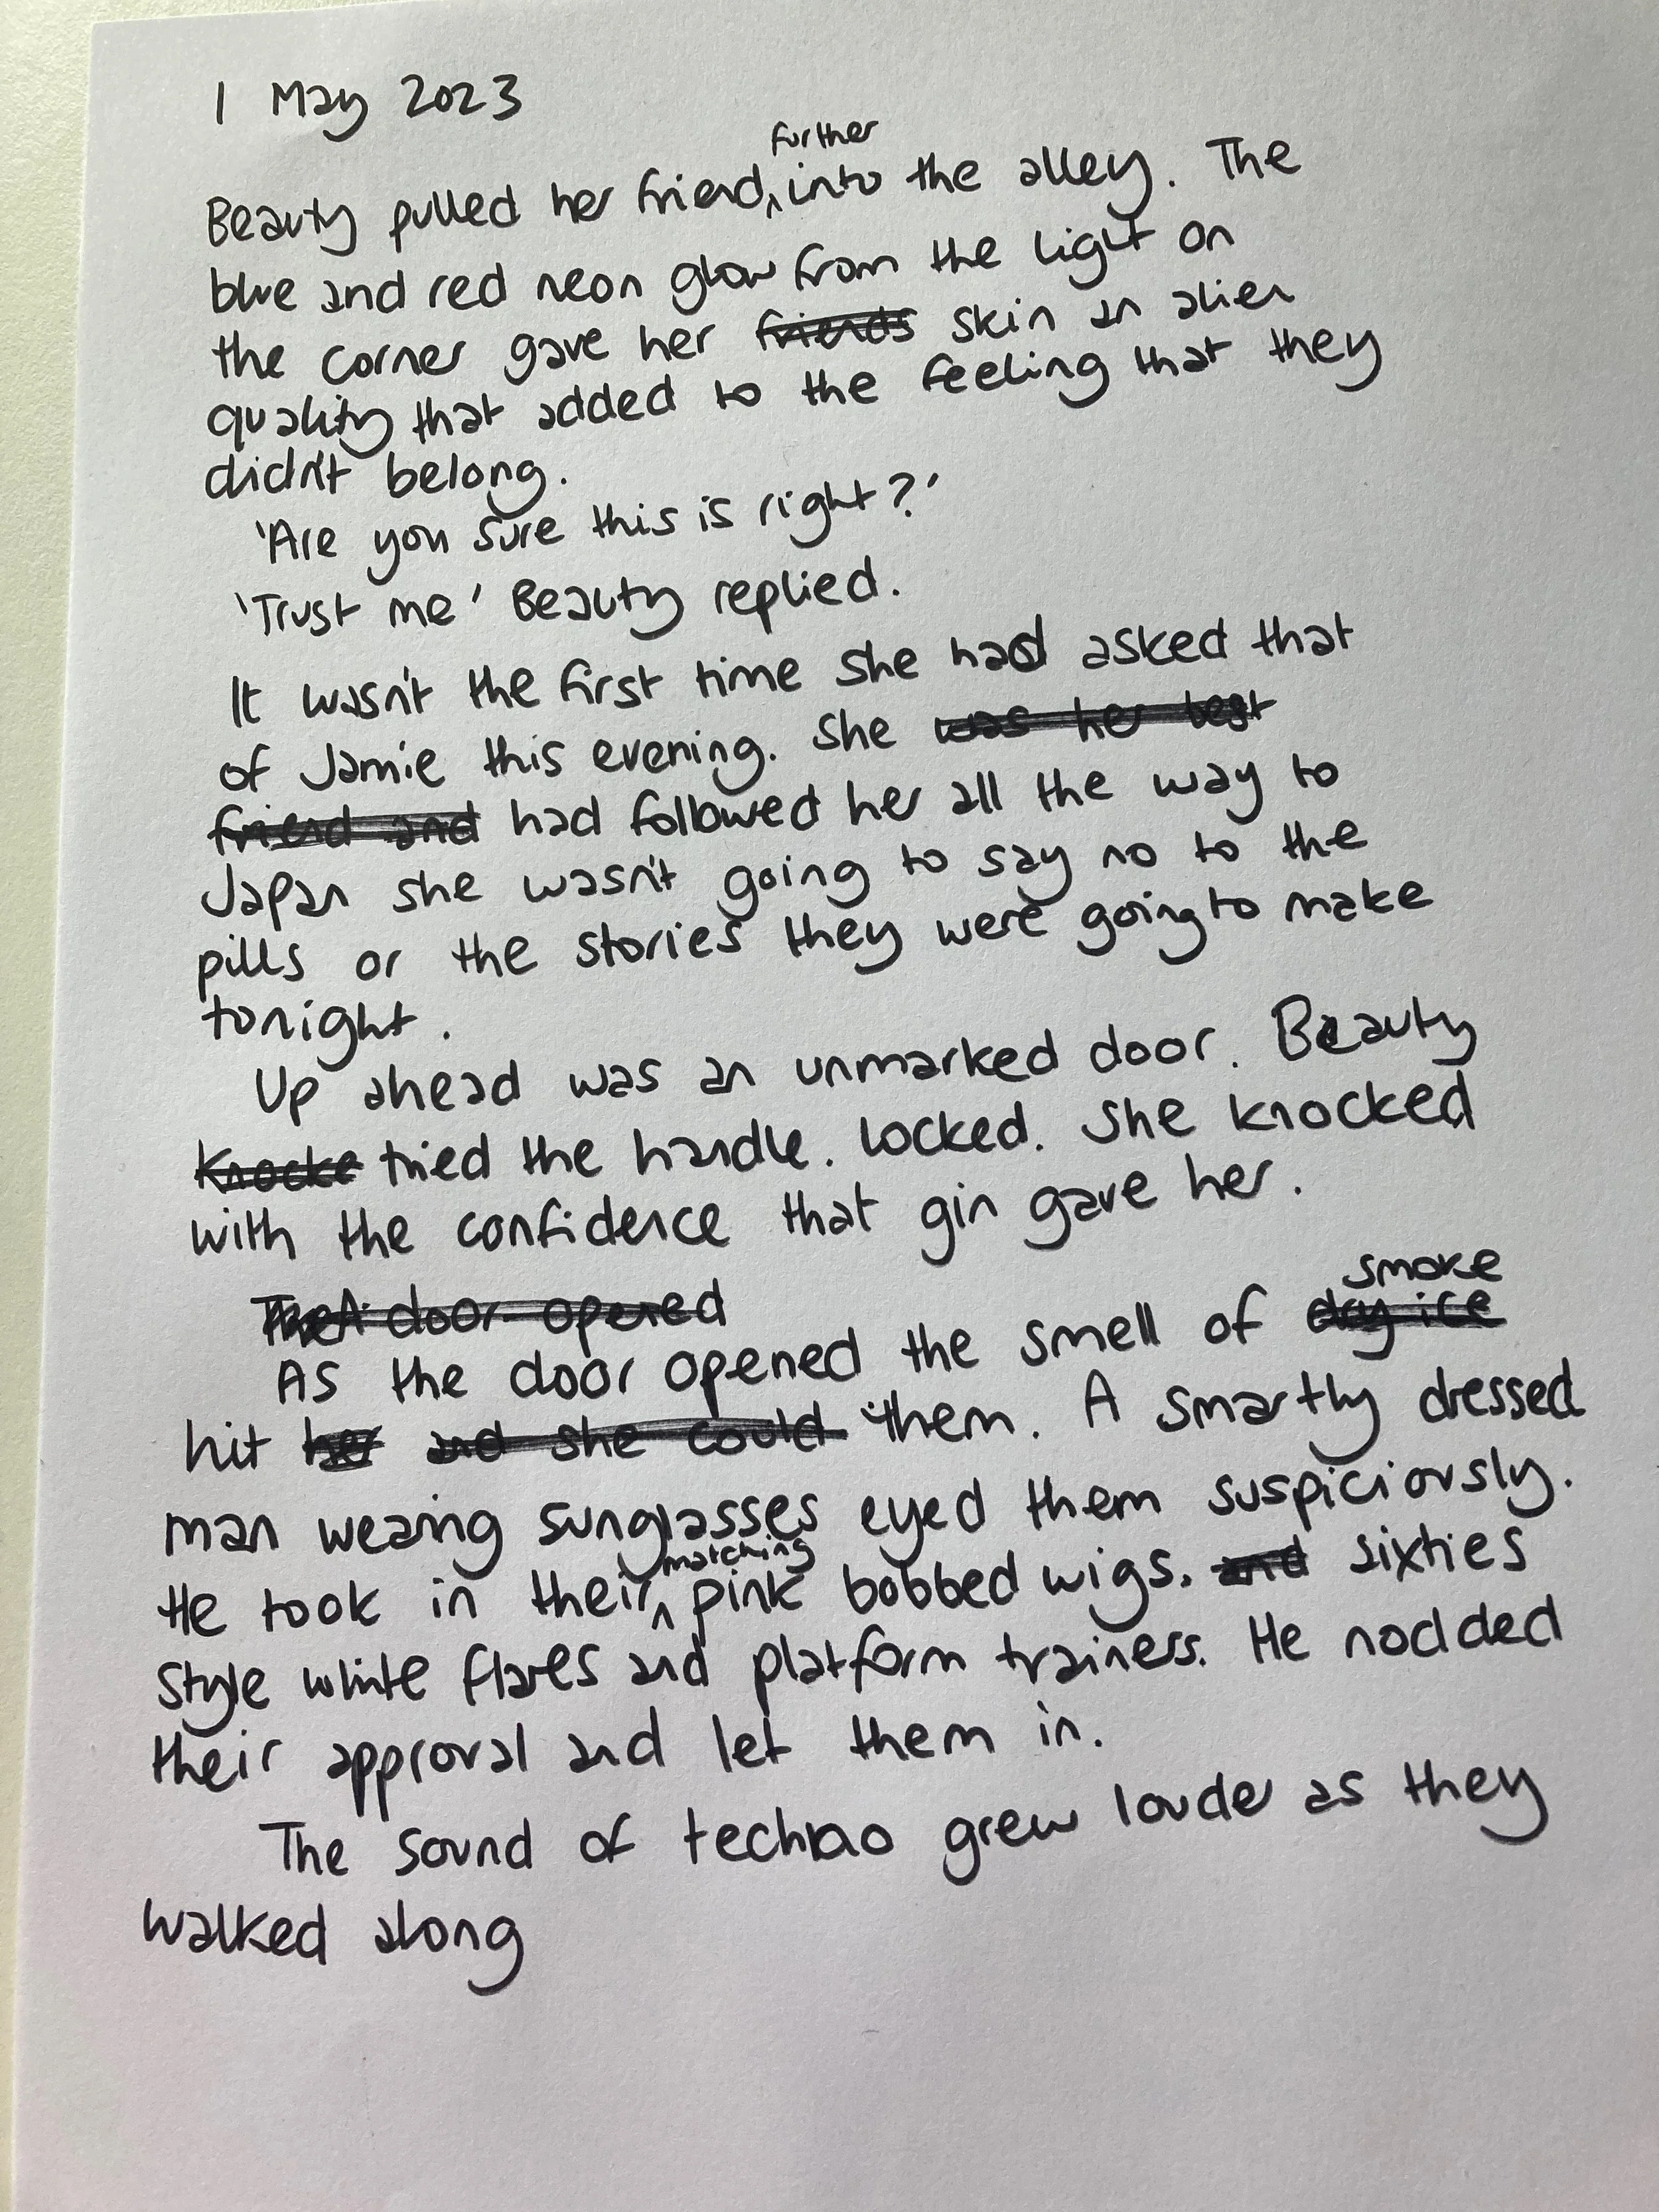 1 May 2023
further
Beauty pulled her friend, into the alley. The
blue and red neon glow from the light on
the corner gave her friends skin an alien
quality that added to the feeling that they
didn't belong.
'Are you sure this is right?'
'Trust me' Beauty replied.
It wasn't the first time she had asked that
of Jamie this evening. She was her best
friend and had followed her all the way to
Japan she wasn't going to say no to the
pills or the stories they were going to make
tonight.
Up ahead was an unmarked door. Beauty
Knocke tried the handle. Locked. She knocked
with the confidence that gin gave her.
The door opened
smoke
As the door opened the smell of dry ice
hit her and she could them. A smartly dressed
man wearing sunglasses eyed them suspiciously.
matching
He took in their pink bobbed wigs. and sixties
style white flares and platform trainers. He nodded
their approval and let them in.
The sound of techno grew louder as they
walked along